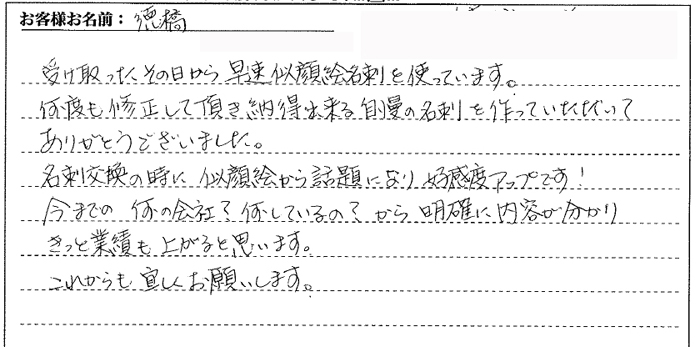 お客様お名前： 德橋
受け取ったその日から早速似顔絵名刺を使っています。
何度も修正して頂き納得出来る自慢の名刺を作っていただいて
ありがとうございました。
名刺交換の時に似顔絵から話題になり好感度アップです！
今までの何の会社？何しているの？から明確に内容が分かり
きっと業績も上がると思います。
これからも宜しくお願いします。